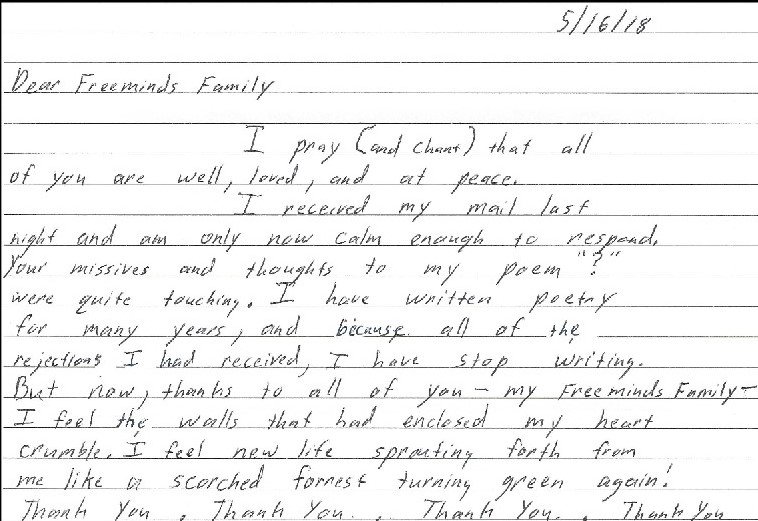 5/16/18
Dear Freeminds Family
I pray (and chant) that all
of you are well, loved, and at peace.
I received my mail last
night and am only now calm enough to respond.
Your missives and thoughts to my poem "?"
were quite touching. I have written poetry
for many years, and because all of the
rejections I had received, I have stop writing.
But now, thanks to all of you - my Freeminds Family -
I feel the walls that had enclosed my heart
crumble. I feel new life sprouting forth from
me like a scorched forrest turning green again!
Thank You . Thank You . Thank You . Thank You